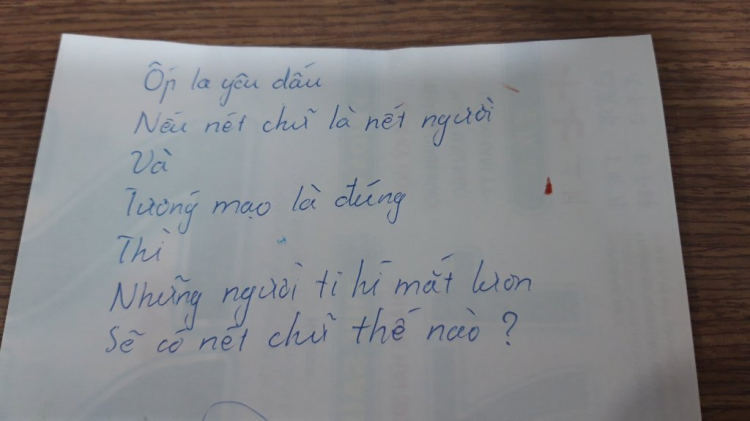 Ốp la yêu dấu
Nếu nét chữ là nết người
Và
Tướng mạo là đúng
Thì
Những người ti hí mắt lươn
Sẽ có nét chữ thế nào ?